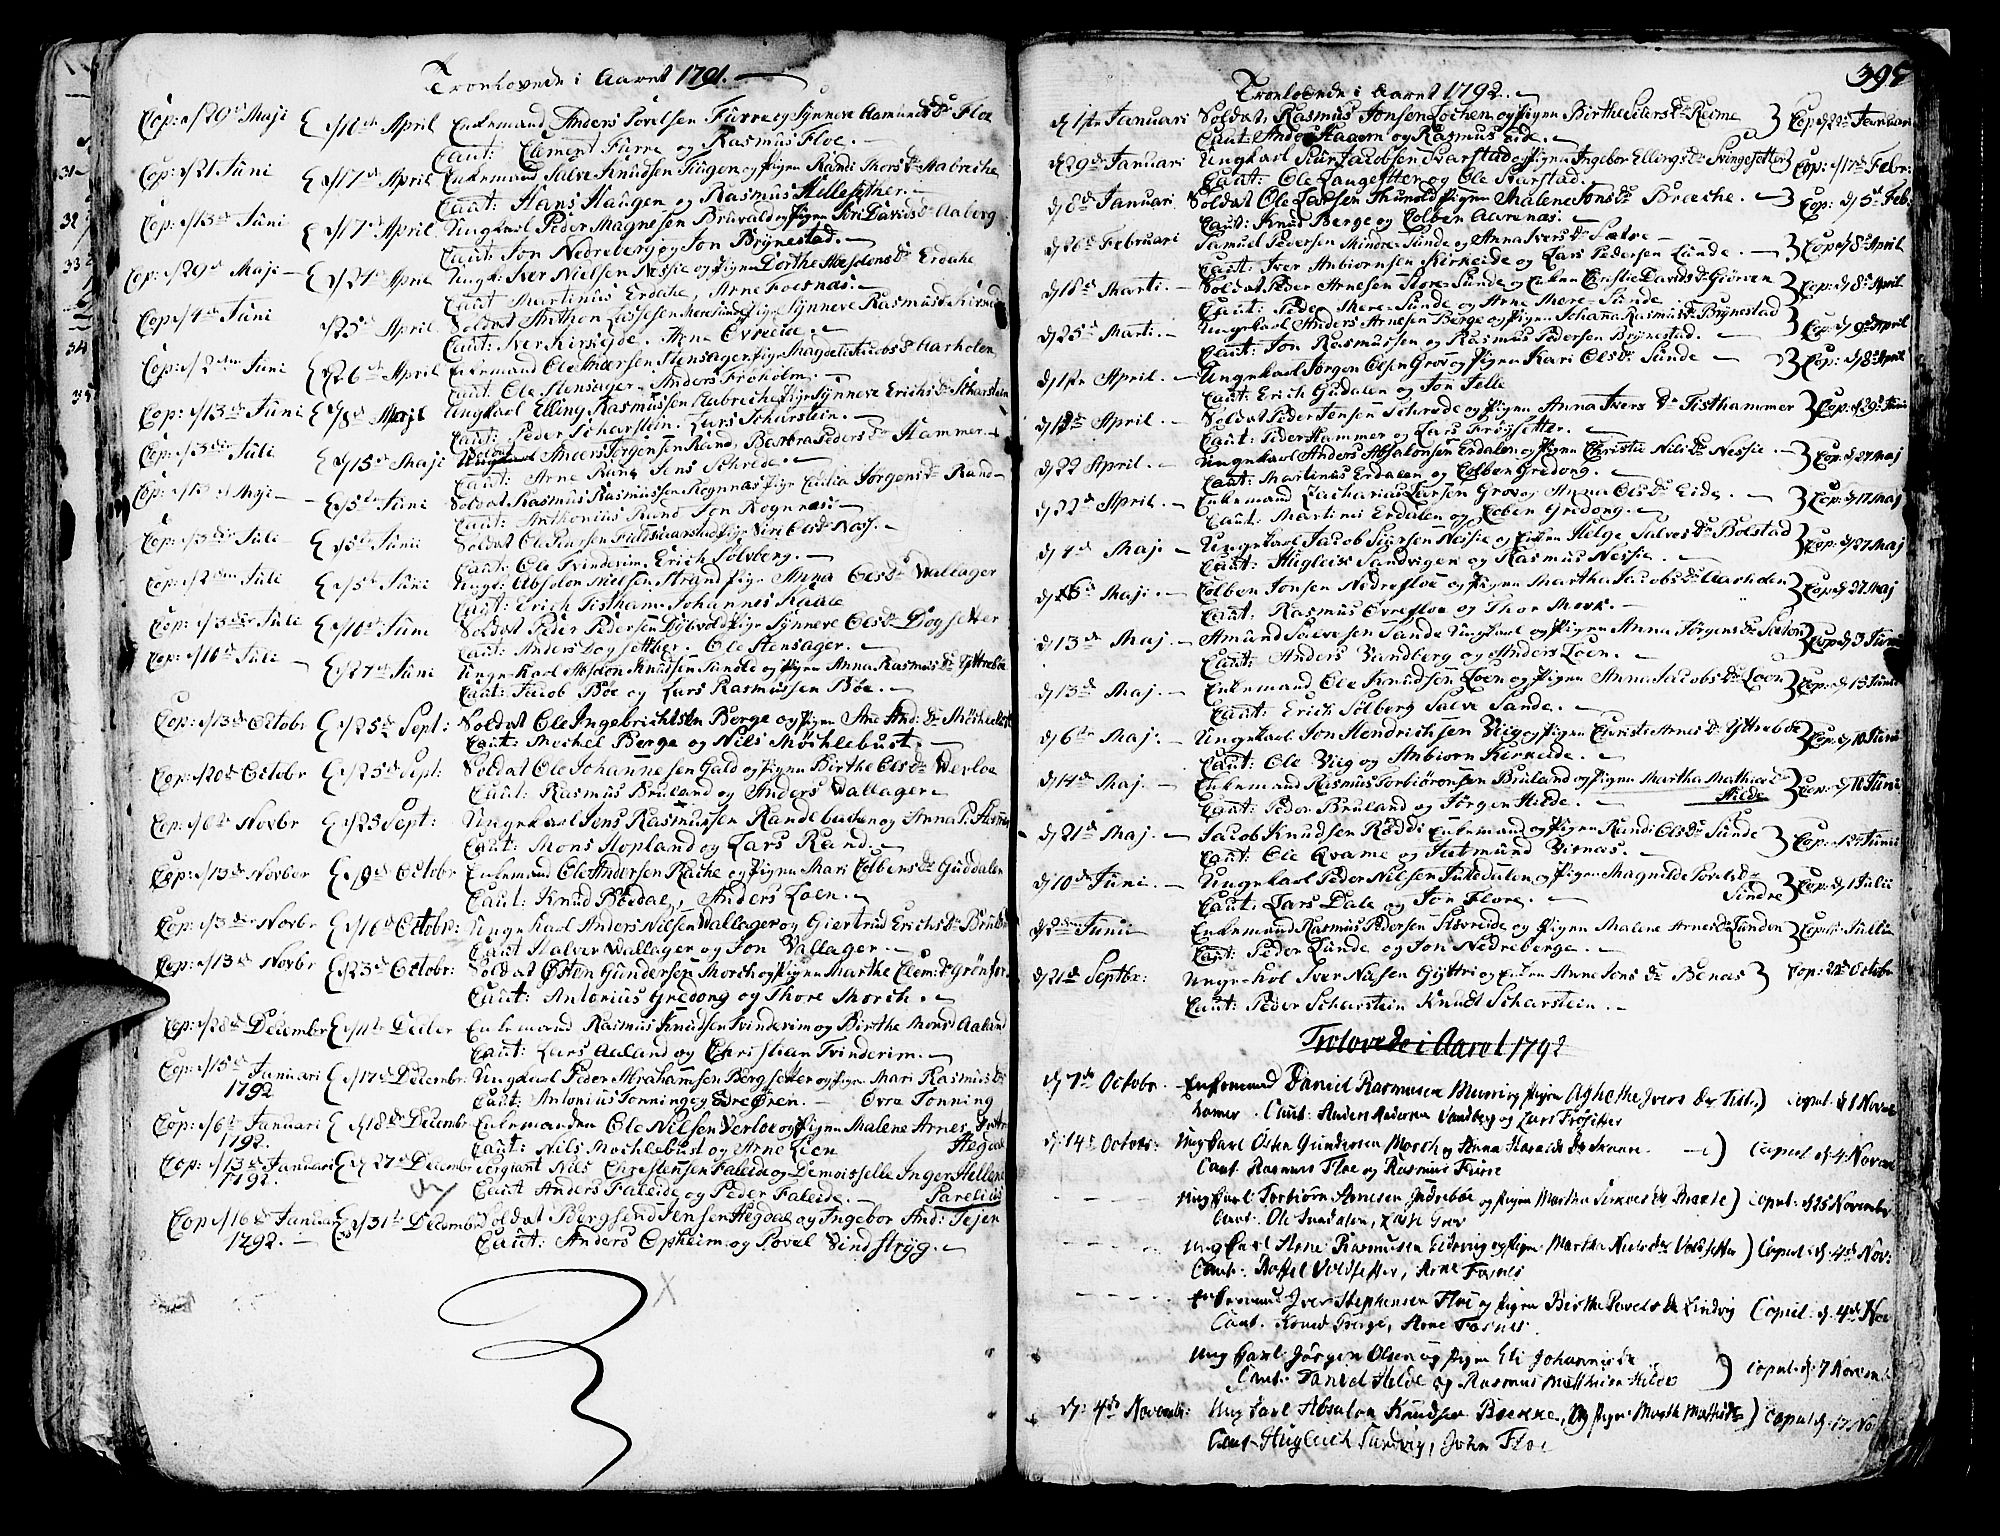 Tronlovede i Aaret 1791.
Cop: d/29de Maji d/11te April Enkemand Anders Povelsen Furre og Synneve Aamunds Dr Floe
Caut: Clement Furre og Rasmus Floe.
Cop: d/21 Juni d/17de April Enkemand Salve Knudsen Haugen og Pigen Randi Thors Dr
Caut: Hans Haugen og Rasmus Hellesether.
Cop: d/13de Juni d/17de April Ungkarl Peder Magnesen Bruvold og Pigen Siri Davids Dr Aaberg
Caut: Jon Nedreberg og Jon Brynestad.
Cop: d/29de Maji d/24de April Ungk: Iver Nielsen Nessie og Pigen Dorthe Absolons Dr Erdahl
Caut Martinus Erdahl, Arne Foesnæs.
Cop d/4de Juni d/25de April Soldat Anthon Lassesen Meresunde og Pigen Synneve Rasmus Dr
Caut: Iver Kirseide. Arne Evreide.
Cop: d/2den Juni d/26de April Enkemand Ole Andersen Stensager Pige Magdeli Jacobs Dr Aarholen
Caut: Ole Stensager. Anders Froholm.
Cop: d/13de Juni d/8de Maji Ungkarl Elling Rasmussen Pige Synneve Erichs Dr Scharstein
Caut: Peder Scharstein. Lars Scharstein.
Cop: d/3die Juli d/15de Maji Soldat Anders Jørgensen Rand, Barbra Peders Dr Hammer.
Caut: Arne Rand Jens Schrede.
d/5te Juni Soldat Rasmus Rasmussen Rognnæs Pige Cecilia Jørgens Dr Rand
Caut: Anthonius Rand Jon Rognnæs.
Cop: d/3die Juli d/5te Juni Soldat Ole
Caut: Ole Tvinderim Erich Solvberg.
Cop: d/2den Juli d/5te Juni Ungk: Absolon Nielsen Strand Pige Anna Ols Dr Vallager
Caut: Erich Tistham Johannes Raae
Cop: d/3die Juli d/10de Juni Soldat Peder Pedersen Pige Synneve Ols Dr Dogsetter
Caut: Anders Dogsetter. Ole Stensager.
Cop: d/10de Juli d/27de Juni Ungekarl Absolon Knudsen Sunde og Pigen Anna Rasmus Dr Yttrebøe
Caut: Jacob Bøe og Lars Rasmussen Bøe.
Cop: d/3de Octobr d/25de Sept: Soldat Ole Ingebrichtsen Berge og Pigen Ane And: Dr Møchlebust
Caut: Mechel Berge og Nils Møchlebust.
Cop: d/20de Octobr d/25de Sept: Soldat Ole Johannesen Gald og Pigen Birthe Ols Dr Verloe
Caut: Rasmus Bruland og Anders Vallager
Cop: d/6te Novbr d/25 Sept: Ungekarl Jens Rasmussen Randebuchen og Anna P:
Caut: Mons Hopland og Lars Rand.
Cop: d/13de Novber d/9de Octobr Enkemand Ole Andersen Rache og Pigen Mari Colbens Dr Guddalen
Caut: Knud Bødal, Anders Loen.
Cop: d/3die Novbr d/16de Octobr: Ungekarl Anders Nilsen Vallager og Giertrud Erichs Dr Bruland
Caut Halver Vallager og Jon Vallager.
Cop: d/13de Novbr d/23de Octobr: Soldat Østen Gundersen Morch og Pigen Marthe Clem: Dr
Caut: Antonius Gredong og Thore Morch.
Cop: d/28de Decembr d/11te Decber Enkemand Rasmus Knudsen Tvinderim og Birthe Mons Dr Aaland
Caut: Lars Aaland og Christian Tvinderim.
Cop: d/15de Januari d/17de Decembr Ungkarl Peder Abrahamsen Bergsetter og Pigen Mari Rasmus Dr
1792 Caut: Antonius Tonning og Endre Øren. Øvre Tonning
Cop: d/6te Januari d/18de Decembr Enkemanden Ole Nilsen Verloe og Pigen Malene Arnes
1792. Caut: Nils Mochlebust og Arne Loen Hegdal
Cop: d/13de Januari d/27de Decembr Sergiant Nils Christensen Faleide og Demoiselle Inger Helland
1792. Caut Anders Faleide og Peder Faleide. Parelius
Cop d/16de Januari d/31te Decembr Soldat Bergsend Jensen Hegdal og Ingebor And: Tejen
1792. Caut: Anders Opheim og Povel Vindstryg.
395
Tronlovede i Aaret 1792.
d/1ste Januari Soldat Rasmus Jonsen Lochen og Pigen Birthe Siers Dr Cop d/2de Februari
Caut: Anders Haaem og Rasmus Eide.
d/29de Januari Ungkarl Siur Jacobsen Svarstad og Pigen Ingebor Ellings Dr Svingesetter Cop: d/17de Febr:
Caut: Ole Langesetter og Ole Svarstad.
d/8de Januari Soldat Ole Larsen Thunold Pigen Malene Jons Dr Breche. Cop: d/5te Feb.
Caut: Knud Berge og Colben Aarenæs.
d/26de Februari Samuel Pedersen Mindre-Sunde og Anna Ivers Dr Sætre Cop d/8de April
Caut: Iver Anbiornsen Kirkeide og Lars Pedersen Sunde.
d/18de Marti. Soldat Peder Arnesen Store-Sunde og Enken Christie Davids Dr Giørven Cop: d/8de April
Caut: Peder Mere-Sunde og Arne Mere-Sunde
d/25de Marti. Ungekarl Anders Arnesen Berge og Pigen Johanna Rasmus Dr Brynestad Cop: d/9de April
Caut: Jon Rasmussen og Rasmus Pedersen Brynestad.
d/1ste April. Ungekarl Jorgen Olsen Grov og Pigen Kari Ols Dr Sunde Cop: d/8de April
Caut: Erich Gudalen og Jon Felle
d/13de April. Soldat Peder Jensen Schrede og Pigen Anna Ivers Dr Tisthammer Cop: d/29de Juni
Caut: Peder Hammer og Lars Frøysetter.
d/22 April. Ungekarl Anders Absalonsen Erdalen og Pigen Christie Nils Dr Nessie. Cop: d/27 Maj
Caut: Martinus Erdalen og Colben Gredong.
d/22de April. Enkemand Zacharias Larsen Grov og Anna Ols Dr Eide. Cop: d/17 Maj
Caut: Martines Erdalen og Colben Gredong.
d/7de Maj. Ungekarl Jacob Siursen Nessie og Pigen Helge Salves Dr Bolstad Cop: d/27 Maj
Caut: Hugleik Sandvigen og Rasmus Nessie.
d/6te Maj. Colben Jonsen Nedrefloe og Pigen Martha Jacobs Dr Aarholen Cop d/27 Maj
Caut: Rasmus Øvrefloe og Thor Mork.
d/13de Maj Amund Salvesen Sande Ungkarl og Pigen Anna Jørgens Dr Sæten Cop d/3 Juni
Caut: Anders Vandberg og Anders Loen.
d/13de Maj. Enkemand Ole Knudsen Loen og Pigen Anna Jacobs Dr Loen Cop: d/13 Juni
Caut: Erich Solberg Salve Sande.
d/6te Maj. Ungekarl Jon Hendrichsen Viig og Pigen Christi Arnes Dr Yttrebøe Cop: d/10 Juni
Caut: Ole Viig og Anbiorn Kirkeide.
d/14de Maj. Enkemand Rasmus Torbiørnsen Bruland og Pigen Martha Mathias Dr Cop: d/11 Juni
Caut: Peder Bruland og Jørgen Hilde. Hilde
d/21de Maj. Jacob Knudsen Røddi Enkemand og Pigen Randi Ols Dr Sunde Cop: 12te Junii
Caut: Ole Qvame og Vitnæs.
d/10de Juni. Ungekarl Peder Nilsen og Pigen Magnilde Povels Dr Cop: d/1 Julii
Caut: Lars Dale og Jon Flore. Sindre
d/2den Junii Enkemand Rasmus Pedersen og Pigen Malene Arnes Dr Sunden Cop: Julii
Caut: Peder Sunde og Jon Nedreberge.
d/21de Septbr: Ungekarl Iver Nielsen Gyttri og Enken Anne Jens Dr Benæs Cop: 22de Octobr
Caut: Peder Scharstein Knudt Scharstein.
Trolovede i Aaret 1792
d/7de Octobr. Enkemand Daniel Rasmusen Muri og Pigen Aghethe Ivers Dr Tist- copul. d/1 Novemb
hamer. Caut: Anders Andersen Vandberg og Lars Frøsetter
d: 14de Octobr: Ungkarl Østen Gundersen Morch og Anna Haralds Dr Skaan. Copul d: 4 Novemb
Caut. Rasmus Floe og Rasmus Furre
Ungkarl Torbiørn Arnesen Indrebøe og Pigen Martha Dr Brække Copul: d/25 Novembr
Caut. Ole Sundalen, Lasse Grov
Ungkarl Arne Rasmusen Eidevig og Pigen Martha Niels Dr Voldsetter Copul: d: 4de Nov:
Caut. Rassel Voldsetter, Arne Fosnes
Enkemand Iver Stephensen Floe og Pigen Birthe Povels Dr Lindvig Copul: d: 4de Nov
Caut. Knud Berge, Arne Fosnes.
Ungkarl Jørgen Olsen og Pigen Eli Johannis Dr Copul d: 7 Novemb
Caut. Daniel Hilde og Rasmus Mathisen Hilde
d: 4de Novembr: Ungkarl Absalon Knudsen Brekke, og Pigen Marth Mathis Dr Copul d: 17 No
Caut. Hugleich Sundvig, John Floe